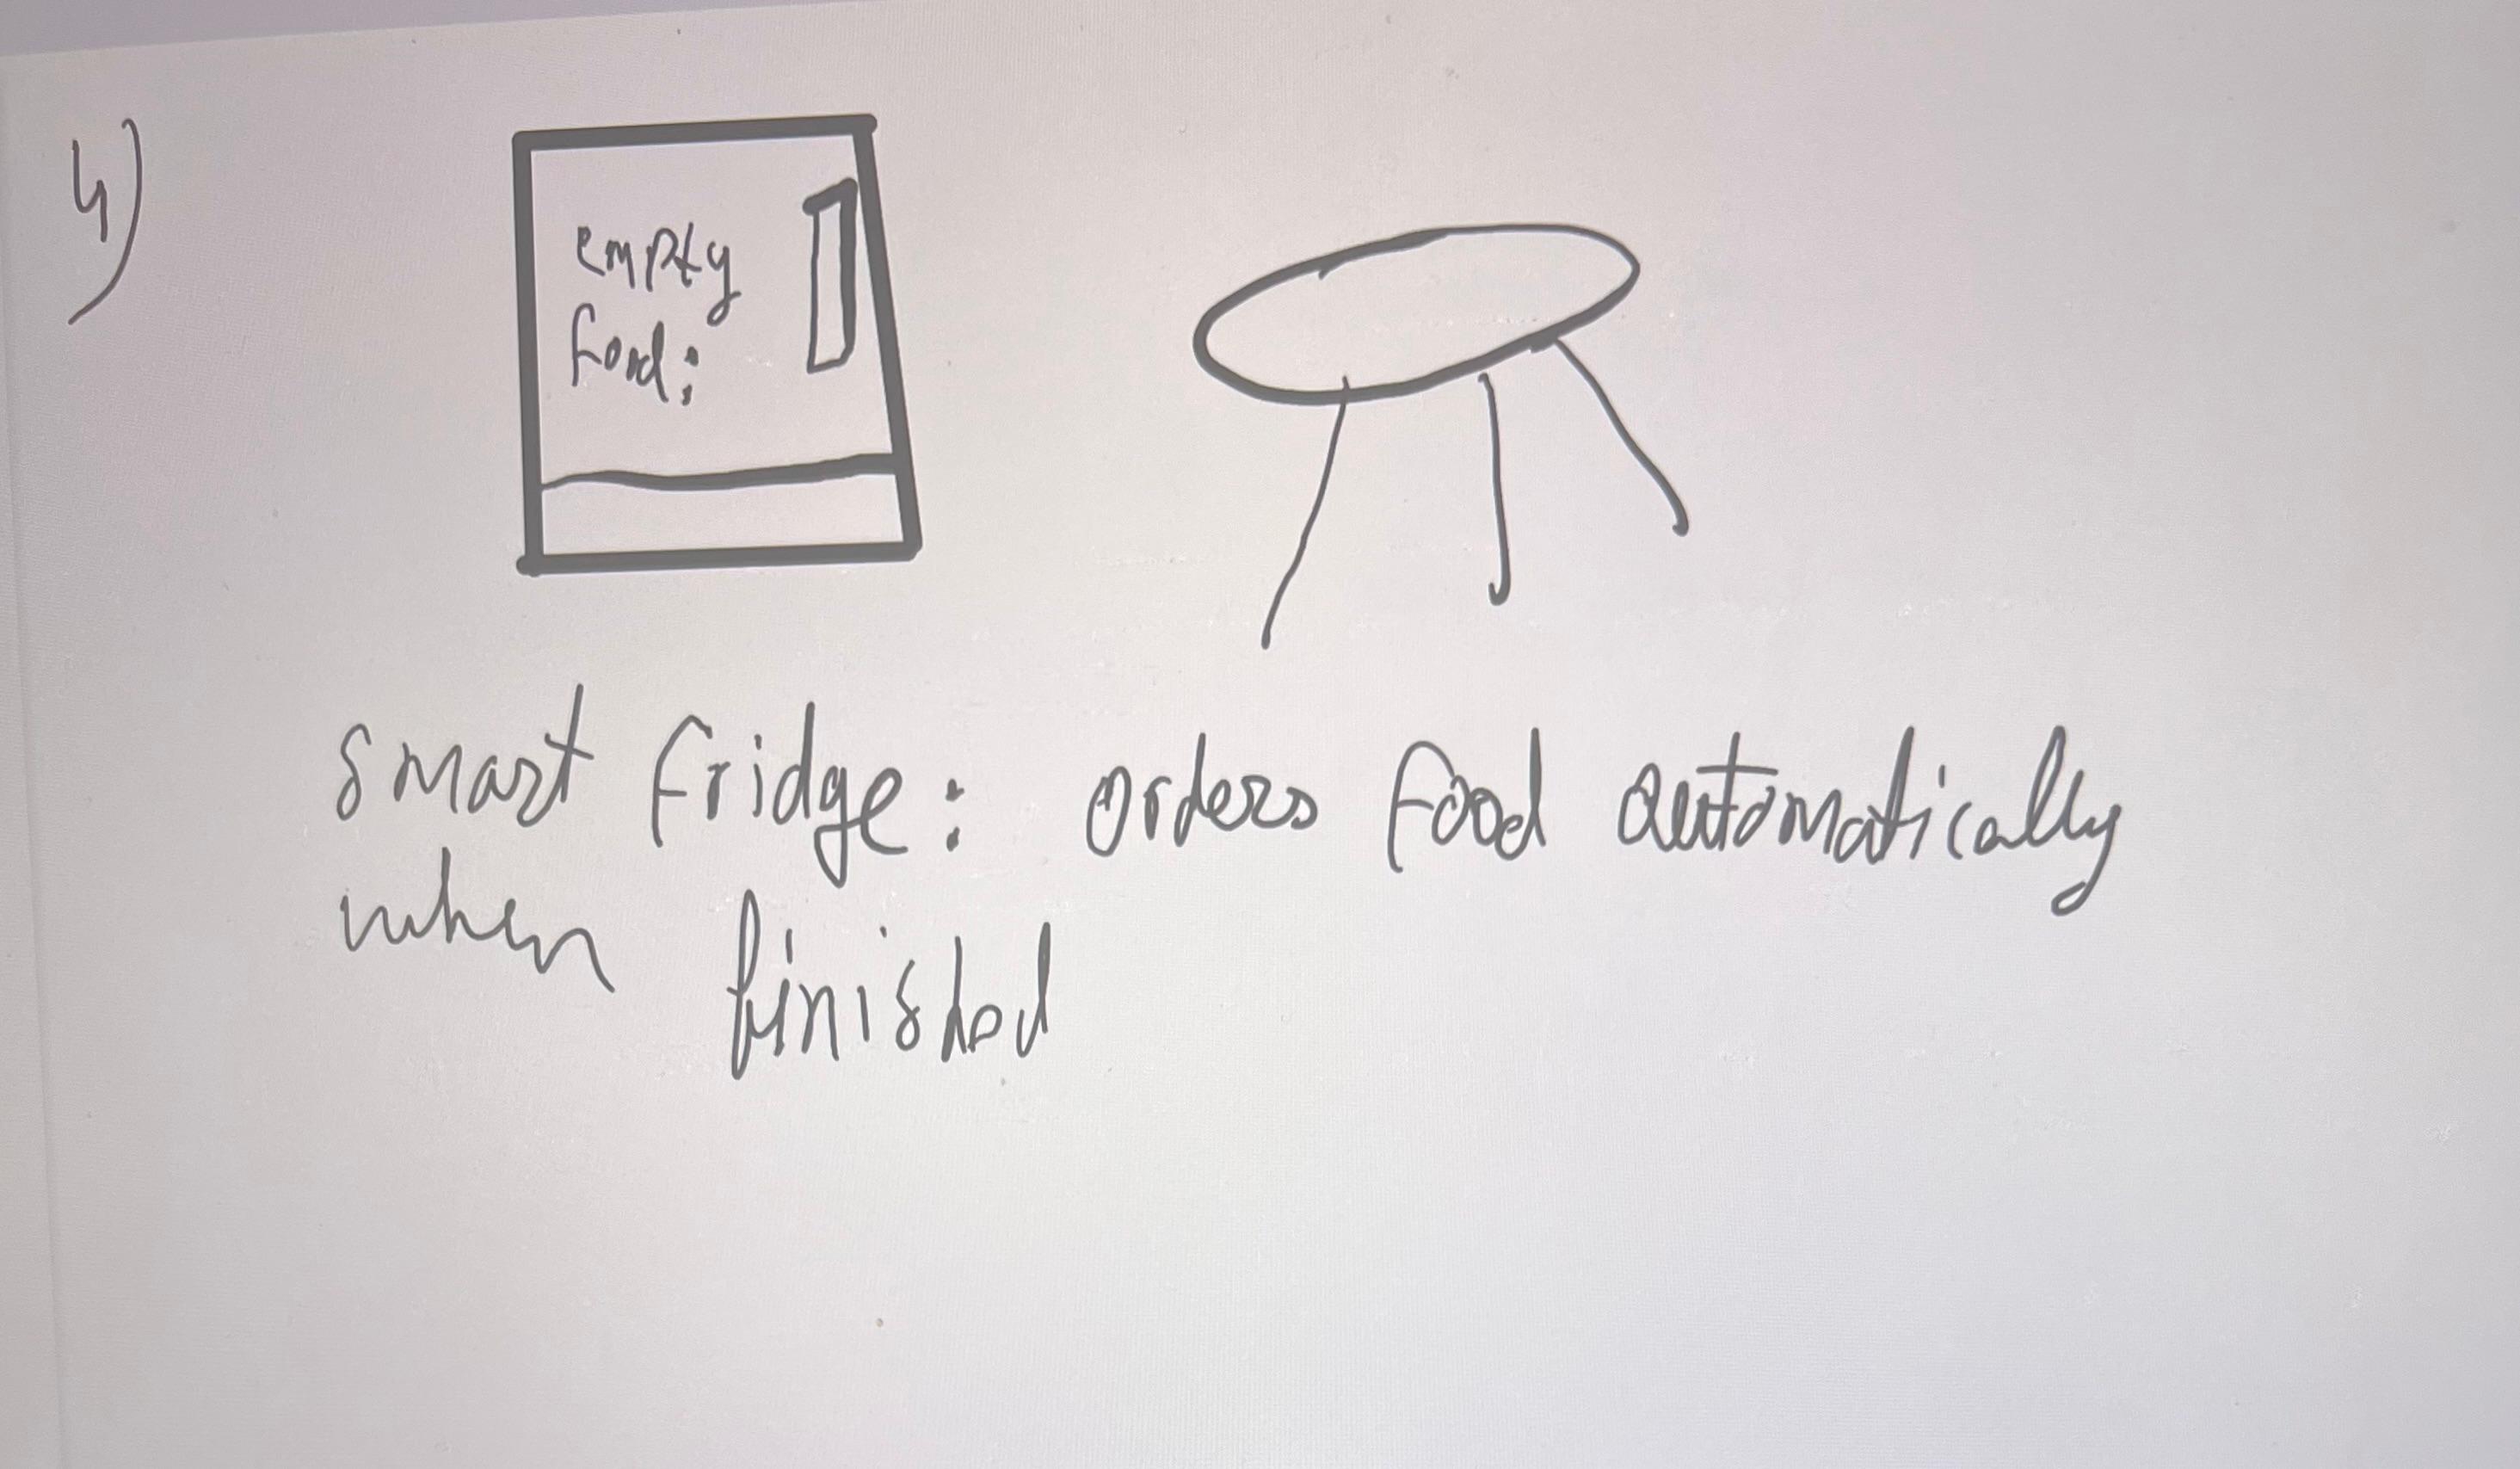 4)
empty
food:
smart fridge: orders food automatically
when finished